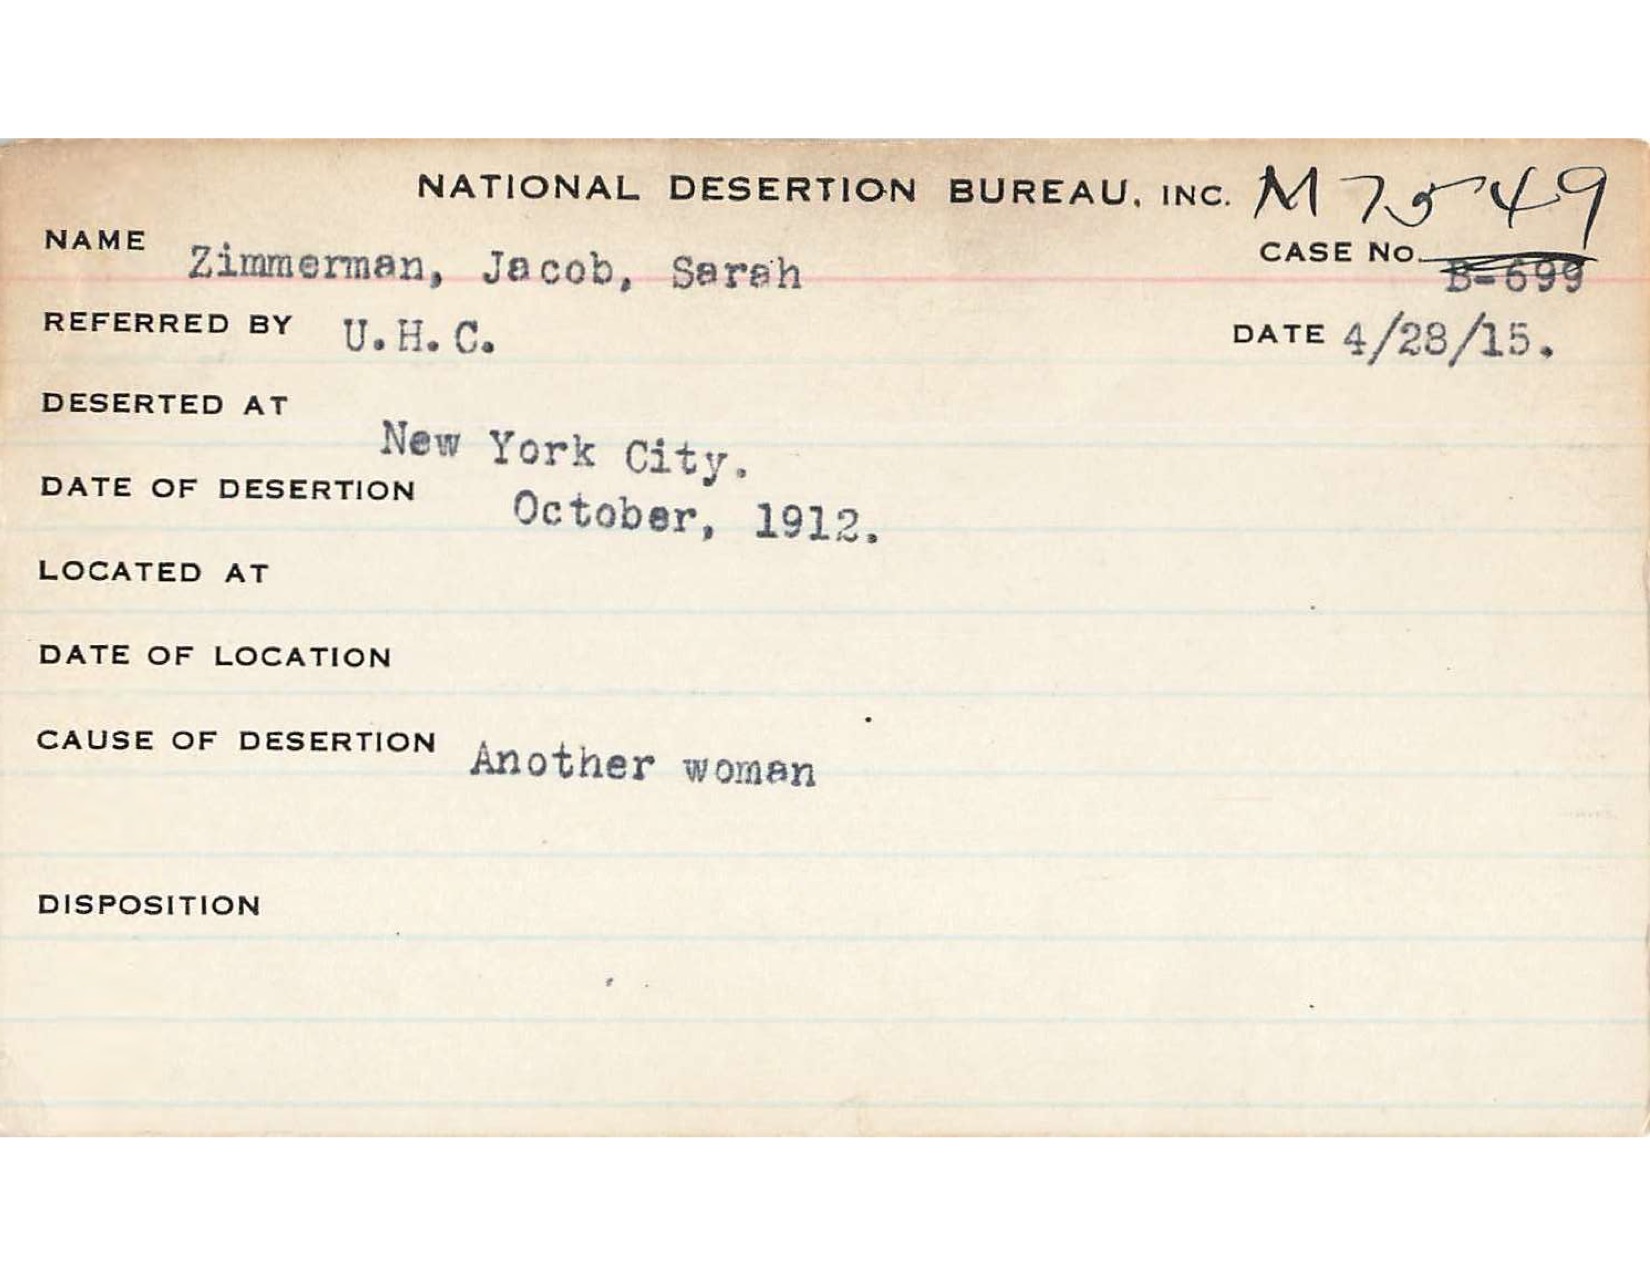 NATIONAL DESERTION BUREAU, INC. M 7549
NAME Zimmerman, Jacob, Sarah CASE NO. B-699
REFERRED BY U.H.C. DATE 4/28/15.
DESERTED AT New York City.
DATE OF DESERTION October, 1912.
LOCATED AT
DATE OF LOCATION
CAUSE OF DESERTION Another woman
DISPOSITION